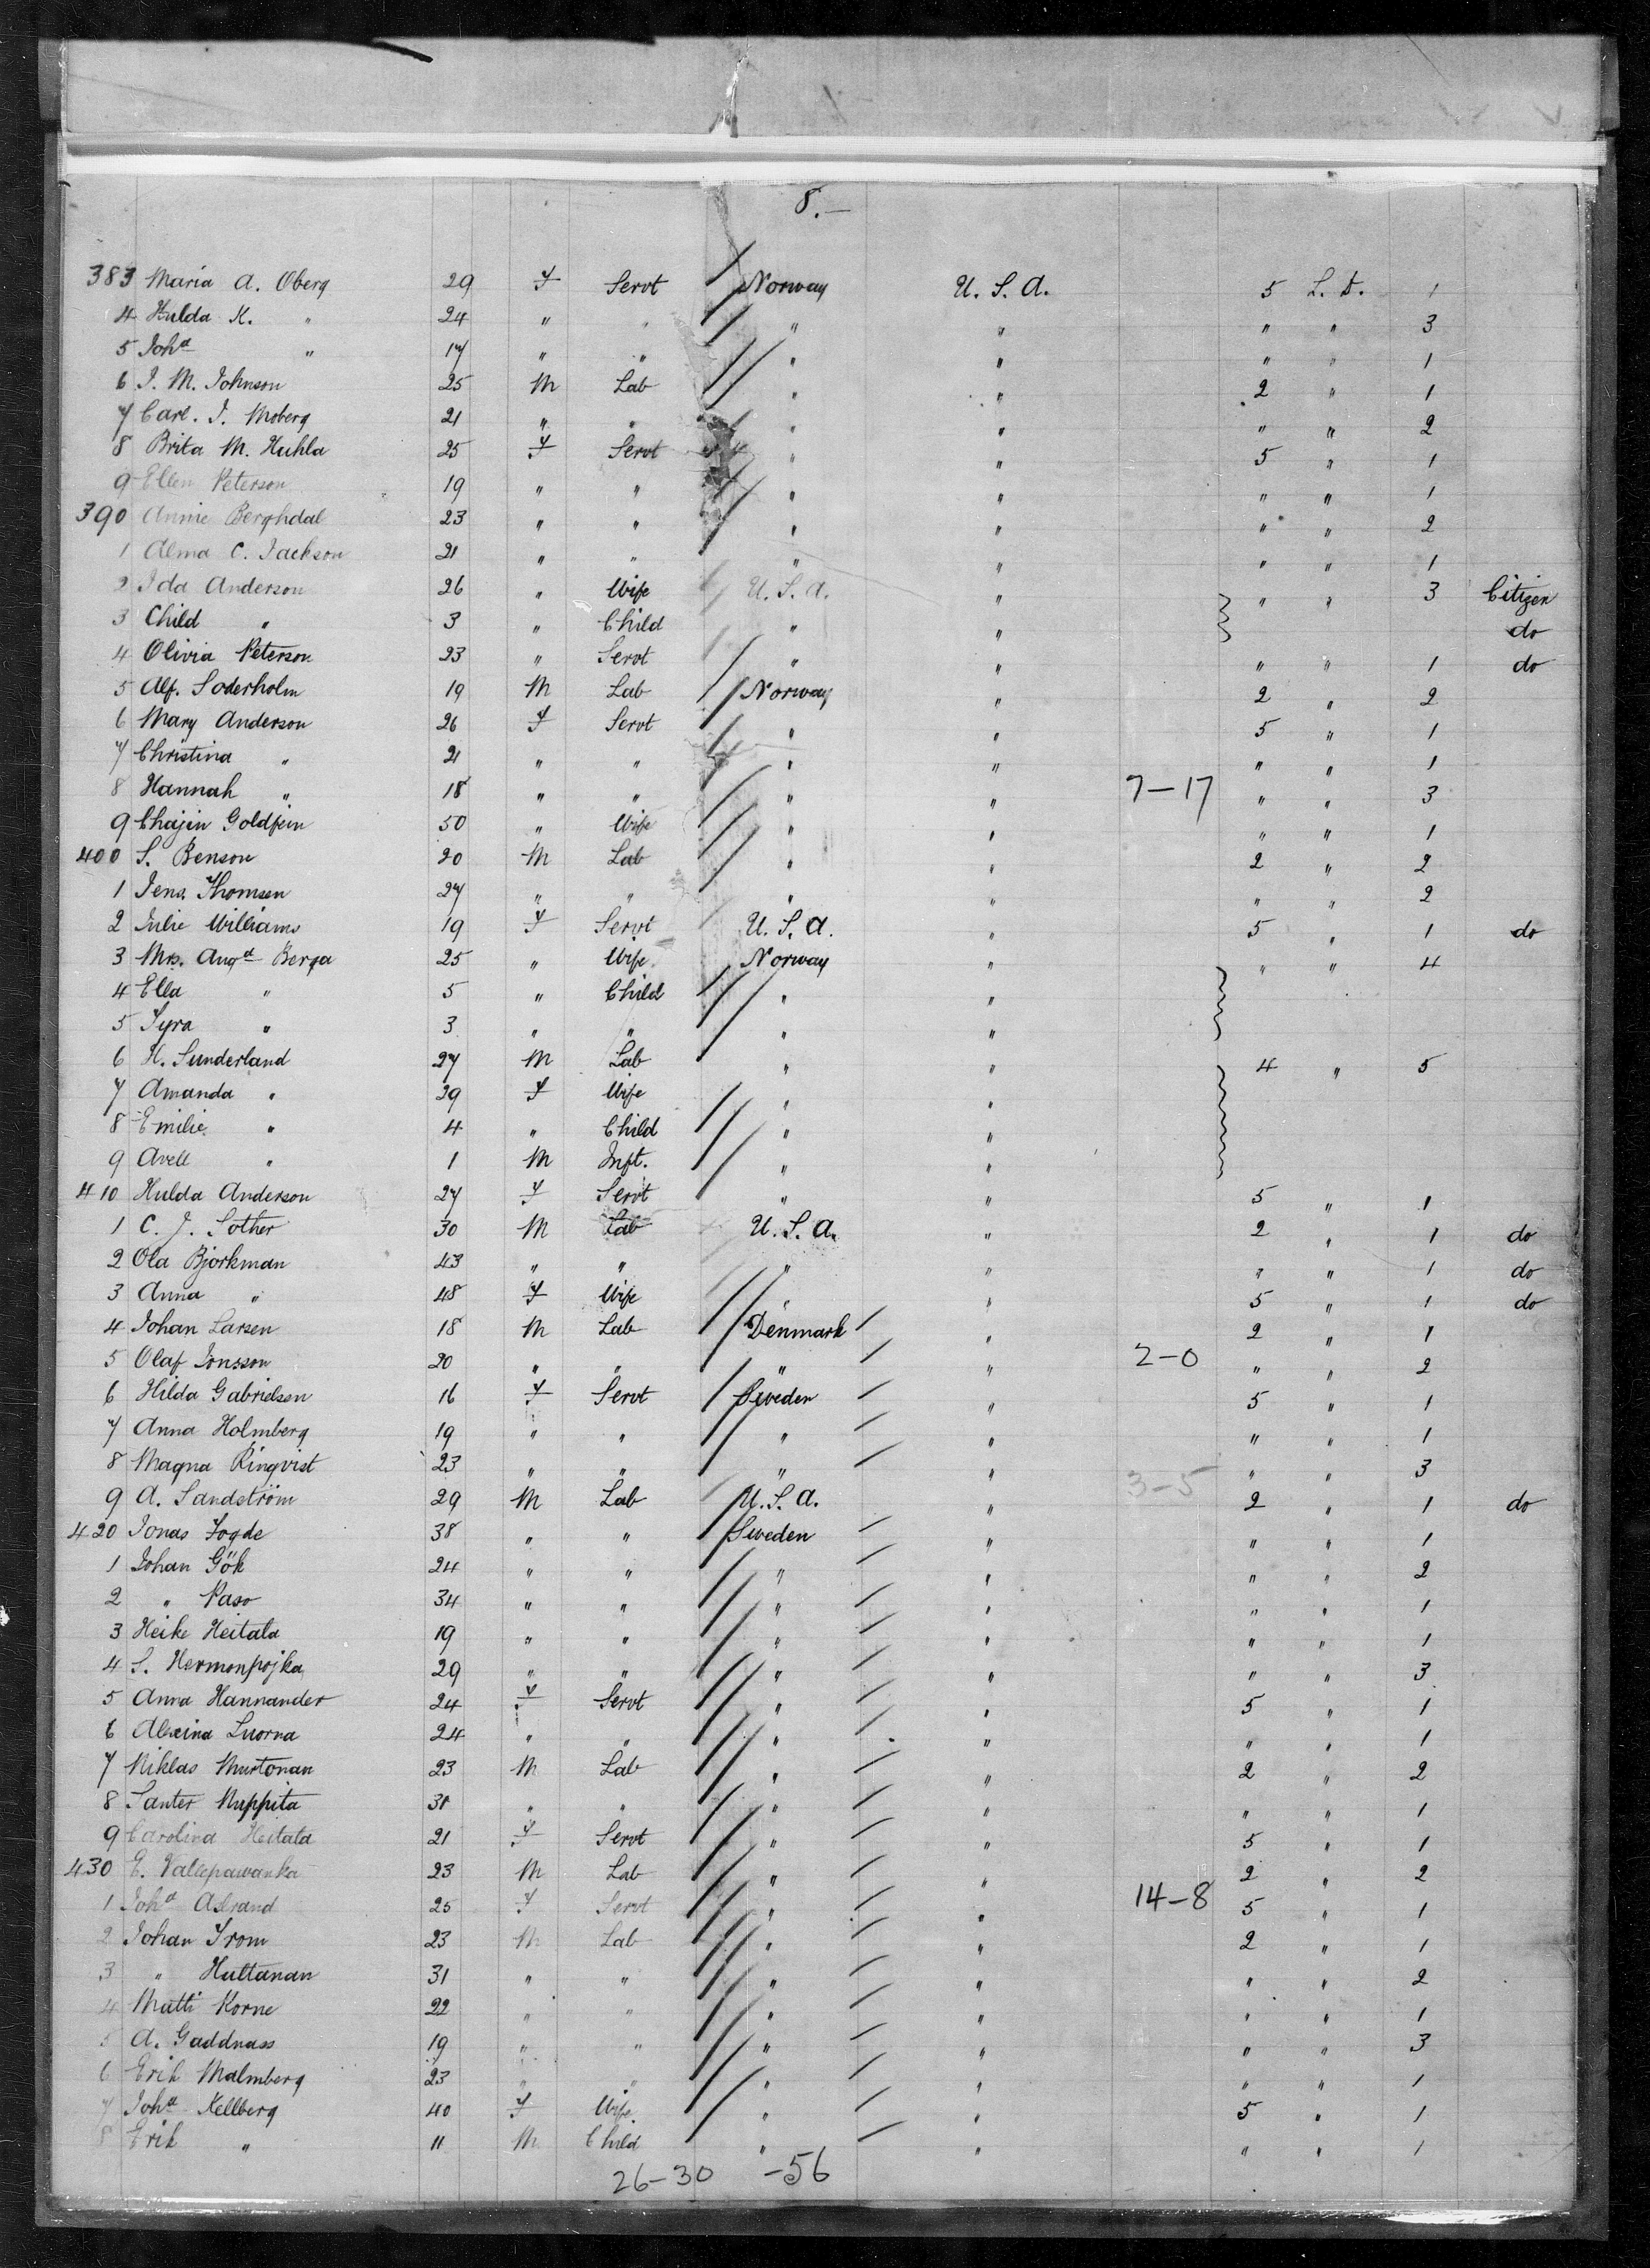 8.—
383 Maria A. Oberg 29 F Servt Norway U.S.A. 5 L.D. 1
4 Hulda K. " 24 " " " " " " 3
5 Joha " 17 " " " " " " 1
6 J. M. Johnson 25 M Lab " " 2 " 1
7 Carl. J. Moberg 21 " " " " " " 2
8 Brita M. Huhla 25 F Servt " " 5 " 1
9 Ellen Peterson 19 " " " " " " 1
390 Annie Berghdal 23 " " " " " " 2
1 Alma C. Jackson 21 " " " " " " 1
2 Ida Anderson 26 " Wife U.S.A. " " " 3 Citizen
3 Child " 3 " Child " " do
4 Olivia Peterson 23 " Servt " " " " 1 do
5 Alf. Soderholm 19 M Lab Norway " 2 " 2
6 Mary Anderson 26 F Servt " " 5 " 1
7 Christina " 21 " " " " " " 1
8 Hannah " 18 " " " " 7–17 " " 3
9 Chajin Goldfein 50 " Wife " " " " 1
400 S. Benson 20 M Lab " " 2 " 2
1 Jens. Thomsen 27 " " " " " " 2
2 Julie Williams 19 F Servt U.S.A. " 5 " 1 do
3 Mrs. Auga Berga 25 " Wife Norway " " " 4
4 Ella " 5 " Child " "
5 Tyra " 3 " " " "
6 H. Sunderland 27 M Lab " " 4 " 5
7 Amanda " 29 F Wife " "
8 Emilie " 4 " Child " "
9 Avell " 1 M Inft. " "
410 Hulda Anderson 27 F Servt " " 5 " 1
1 C. J. Sother 30 M Lab U.S.A. " 2 " 1 do
2 Ola Bjorkman 43 " " " " " " 1 do
3 Anna " 48 F Wife " " 5 " 1 do
4 Johan Larsen 18 M Lab Denmark " 2 " 1
5 Olaf Jonsson 20 " " " " 2–0 " " 2
6 Hilda Gabrielsen 16 F Servt Sweden " 5 " 1
7 Anna Holmberg 19 " " " " " " 1
8 Magna Ringvist 23 " " " " " " 3
9 A. Sandström 29 M Lab U.S.A. " 3–5 2 " 1 do
420 Jonas Fogde 38 " " Sweden " " " 1
1 Johan Gök 24 " " " " " " 2
2 " Paso 34 " " " " " " 1
3 Heike Heitala 19 " " " " " " 1
4 S. Hermonpojka 29 " " " " " " 3
5 Anna Hannander 24 F Servt " " 5 " 1
6 Alexina Luorna 24 " " " " " " 1
7 Niklas Murtonan 23 M Lab " " 2 " 2
8 Santer Nuppita 31 " " " " " " 1
9 Carolina Heitala 21 F Servt " " 5 " 1
430 E. Vallepawanka 23 M Lab " " 2 " 2
1 Joha Aslrand 25 F Servt " " 14–8 5 " 1
2 Johan From 23 M Lab " " 2 " 1
3 " Hultanan 31 " " " " " " 2
4 Matti Korne 22 " " " " " " 1
5 A. Gaddnass 19 " " " " " " 3
6 Erik Malmberg 23 " " " " " " 1
7 Joha Kellberg 40 F Wife " " 5 " 1
8 Erik " 11 M Child " " " " 1
26–30 –56